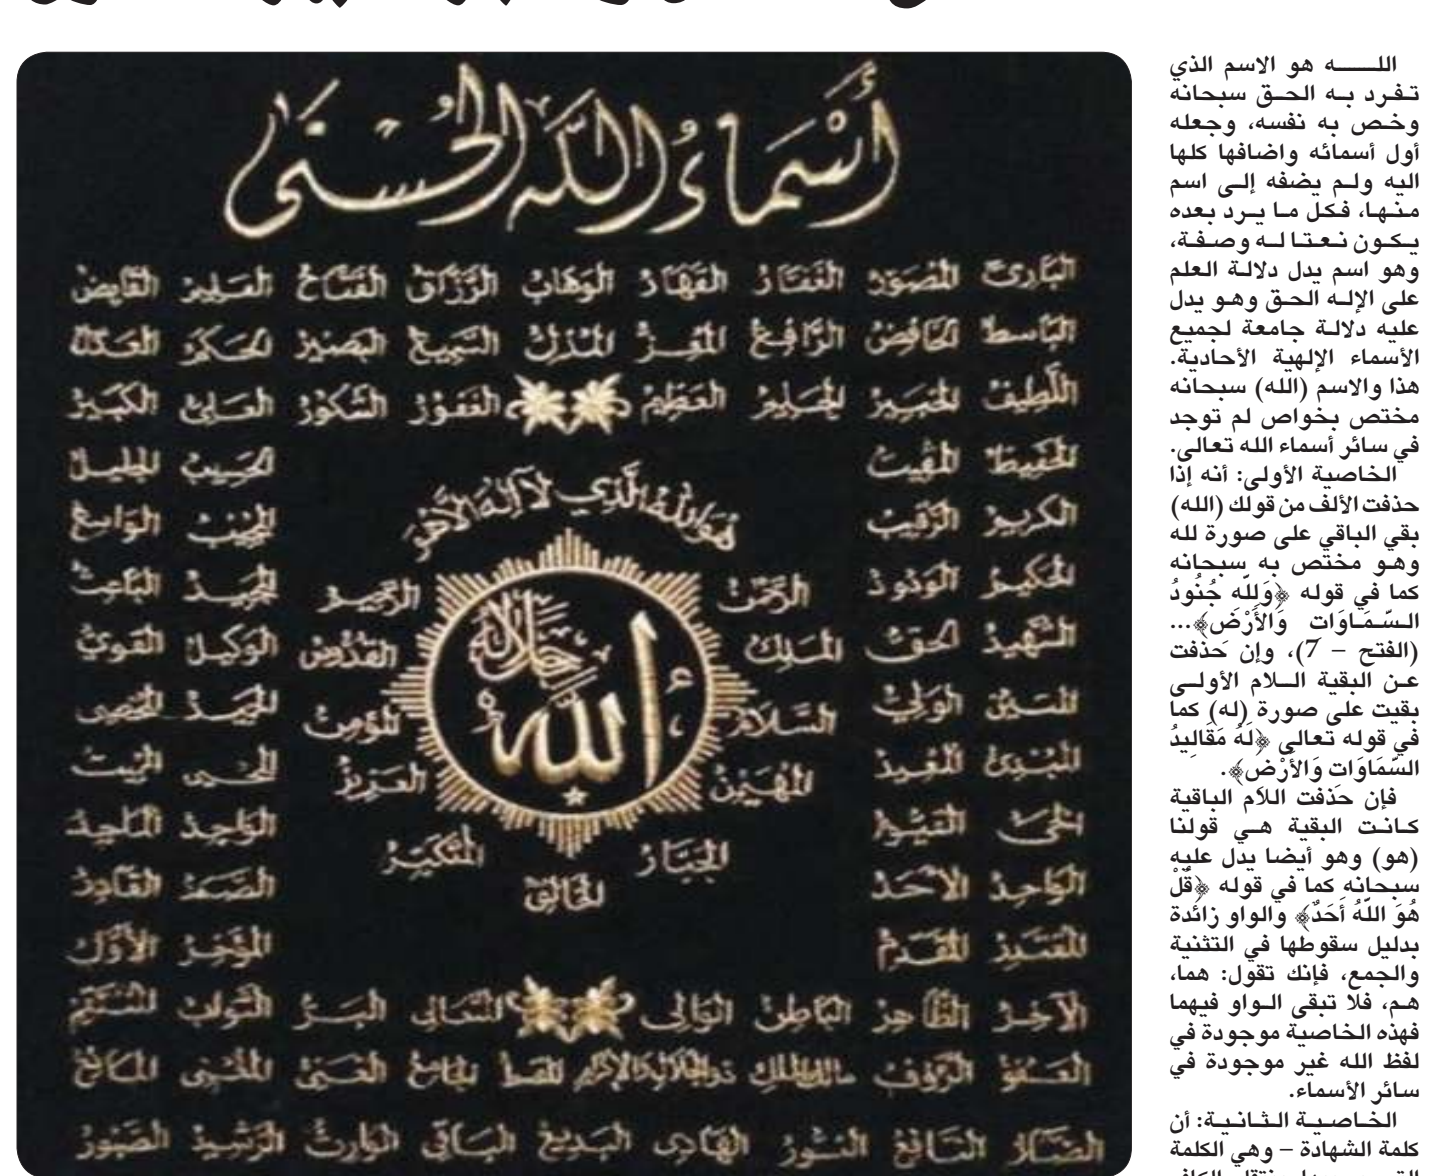 الله هو الاسم الذي
تفرد به الحق سبحانه
وخص به نفسه، وجعله
أول أسمائه واضافها كلها
اليه ولم يضفه إلى اسم
منها، فكل ما يرد بعده
يكون نعتا له وصفة،
وهو اسم يدل دلالة العلم
على الإله الحق وهو يدل
عليه دلالة جامعة لجميع
الأسماء الإلهية الأحادية.
هذا والاسم (الله) سبحانه
مختص بخواص لم توجد
في سائر أسماء الله تعالى.
الخاصية الأولى: أنه إذا
حذفت الألف من قولك (الله)
بقي الباقي على صورة لله
وهو مختص به سبحانه
كما في قوله ﴿وَلِلّه جُنُودُ
السّمَاوَات وَالأَرْض﴾...
(الفتح – 7)، وإن حذفت
عن البقية اللام الأولى
بقيت على صورة (له) كما
في قوله تعالى ﴿لَهُ مَقَاليدُ
السّمَاوَات وَالأَرْض﴾.
فإن حذفت اللام الباقية
كانت البقية هي قولنا
(هو) وهو أيضا يدل عليه
سبحانه كما في قوله ﴿قُلْ
هُوَ اللّهُ أَحَدٌ﴾ والواو زائدة
بدليل سقوطها في التثنية
والجمع، فإنك تقول: هما،
هم، فلا تبقى الواو فيهما
فهذه الخاصية موجودة في
لفظ الله غير موجودة في
سائر الأسماء.
الخاصية الثانية: أن
كلمة الشهادة – وهي الكلمة
أَسْمَاءُ اللَّه الحُسْنَى
البارئ المصور الغفار القهار الوهاب الرزاق الفتاح العليم القابض
الباسط الخافض الرافع المعز المذل السميع البصير الحكم العدل
اللطيف الخبير الحليم العظيم الغفور الشكور العلي الكبير
الحفيظ المقيت الحسيب الجليل
هو الله الذي لا إله إلا هو
الكريم الرقيب المجيب الواسع
الحكيم الودود الرحمن الرحيم المجيد الباعث
الشهيد الحق الملك القدوس الوكيل القوي
الله جل جلاله
المتين الولي السلام المؤمن الحميد المحصي
المبدئ المعيد المهيمن العزيز المحيي المميت
الحي القيوم الجبار المتكبر الواجد الماجد
الواحد الاحد الخالق الصمد القادر
المقتدر المقدم المؤخر الأول
الآخر الظاهر الباطن الوالي المتعالي البر التواب المنتقم
العفو الرؤوف مالك الملك ذو الجلال والاكرام المقسط الجامع الغني المغني المانع
الضار النافع النور الهادي البديع الباقي الوارث الرشيد الصبور